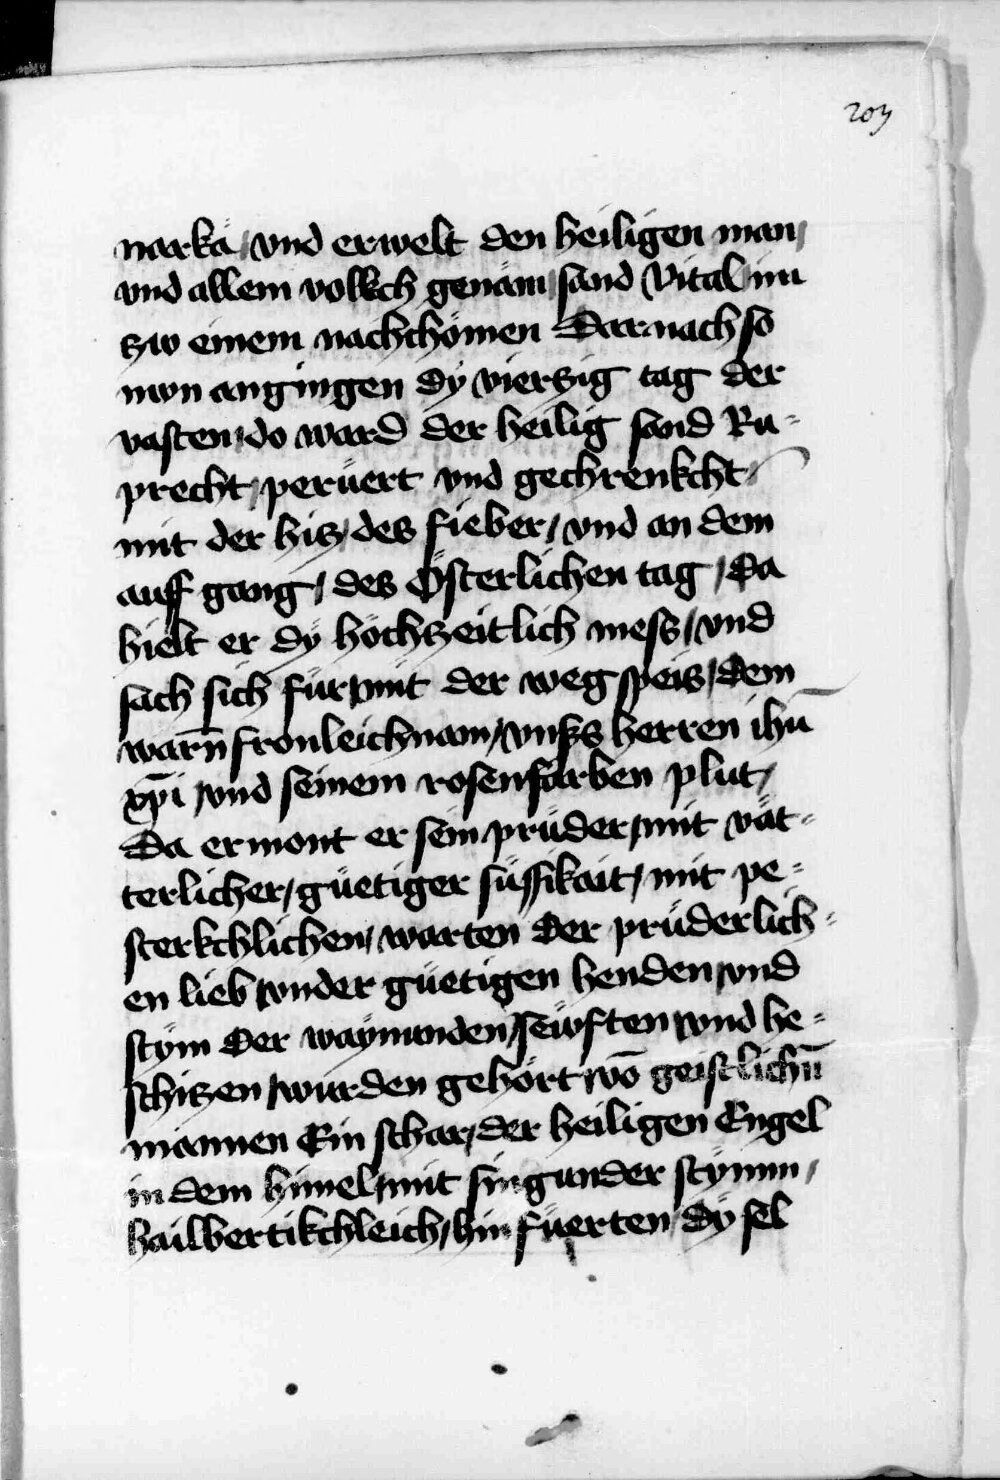 203
narka / vnd erwelt den heiligen man /
vnd allem volkch genäm / sand Vital / im
zw einem nachchömen Darnach so
nwn angingen dÿ vierzig tag der
vasten / do ward der heilig sand Ru-
precht / perüert vnd gechrenkcht /
mit der hiz / des fieber / vnd an dem
auff gang / des Österlichen tag / Da
hielt er dÿ höchzeitlich mess / vnd
sach sich für / mit der weg speis / dem
warn̄ fronleichnam / vnsers herren ihū
xp̄i / vnd seinem rosenfarben plut /
Da ermont er sein prüder / mit vät-
terlicher / güetiger süssikait / mit pe-
sterkchlichen / warten der prüderlich-
en lieb / vnder güetigen henden / vnd
stÿm der waÿnunden / sewften / vnd he-
schizen / wurden gehört / vō geistlichn̄
mannen Ein schar / der heiligen Engel
in dem himel / mit singunder stÿmm /
hailbertikchleich / hin füerten / dÿ sel